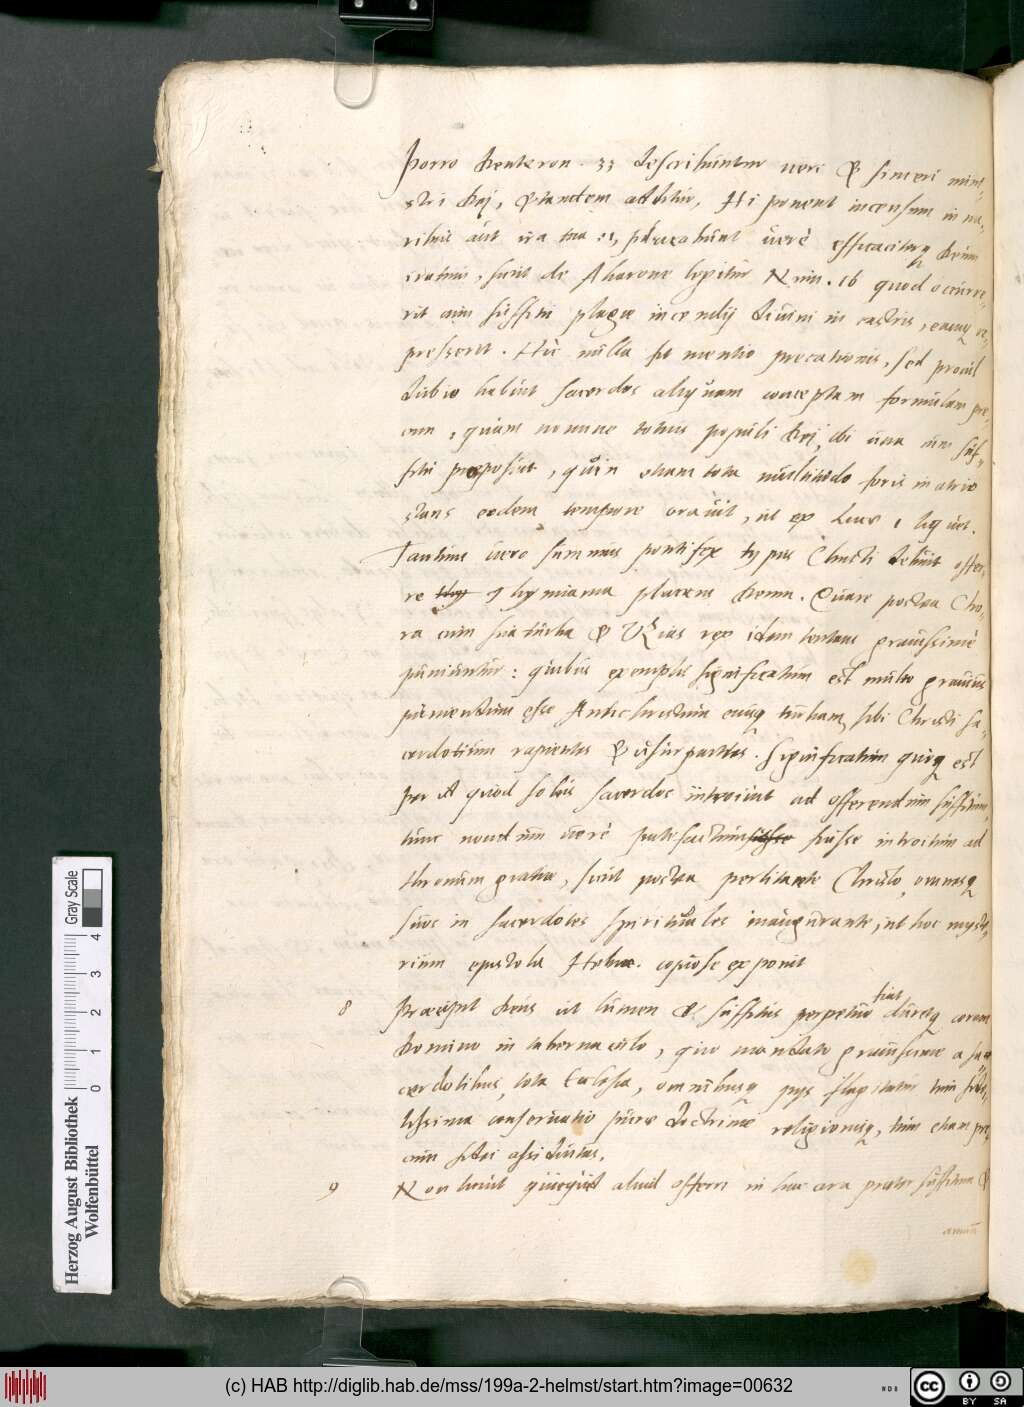 Porro Deuteron. 33 describuntur veri & sinceri mini-
stri Dei, & tandem additur, Hi ponent incensum in na-
ribus tuis, placabunt verè efficaciterq Deum
iratum, sicut de Aharone legitur Num. 16 quod occurre-
rit cum suffitu plagæ incendij divini in castris, eamq re-
presserit. Hic nulla fit mentio precationis, sed procul
dubio habuit sacerdos aliquam conceptam formulam pre-
cum, quam nomine totius populi Dei, ibi una cum suf-
fitu proposuit, quin etiam tota multitudo foris in atrio
stans eodem tempore oravit, ut ex Lucæ 1 liquet.
Tantum vero summus pontifex typus Christi debuit offer-
re thy thymiama placens Deum. Quare postea Cho-
ra cum sua turba & Uzias rex idem tentans gravissimè
puniuntur: quibus exemplis significatum est multo gravius
puniendum esse Antichristum eiusq turbam, sibi Christi sa-
cerdotium rapientes & usurpantes. Significatum quoq est
quod solus sacerdos introivit ad offerendum suffitum,
tunc nondum verè patefactum fuisse introitum ad
thronum gratiæ, sicut postea per Christo, omnesq
suos in sacerdotes spirituales inaugurante, ut hoc myste-
rium epistola Hebræ. copiose exponit
8 Præcipit Deus ut lumen & suffitus perpetuò fiat dureq coram
Domino in tabernaculo, quo mandato gravissime a sa-
cerdotibus, tota Ecclesia, omnibusq pijs flagitatur tum fide-
lissima conservatio puræ doctrinæ religionisq, tum etiam pre-
cum fidei assiduitas.
9 Non licuit quicquid aliud offerri in hac ara præter suffitum &
Herzog August Bibliothek
Wolfenbüttel
Gray Scale
0 1 2 3 4
(c) HAB http://diglib.hab.de/mss/199a-2-helmst/start.htm?image=00632
cc BY SA